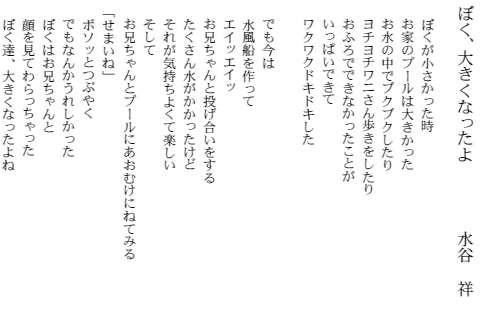 ぼく、大きくなったよ　　　水谷　祥
ぼくが小さかった時
お家のプールは大きかった
お水の中でブクブクしたり
ヨチヨチワニさん歩きをしたり
おふろでできなかったことが
いっぱいできて
ワクワクドキドキした
でも今は
水風船を作って
エイッエイッ
お兄ちゃんと投げ合いをする
たくさん水がかかったけど
それが気持ちよくて楽しい
そして
お兄ちゃんとプールにあおむけにねてみる
「せまいね」
ボソッとつぶやく
でもなんかうれしかった
ぼくはお兄ちゃんと
顔を見てわらっちゃった
ぼく達、大きくなったよね